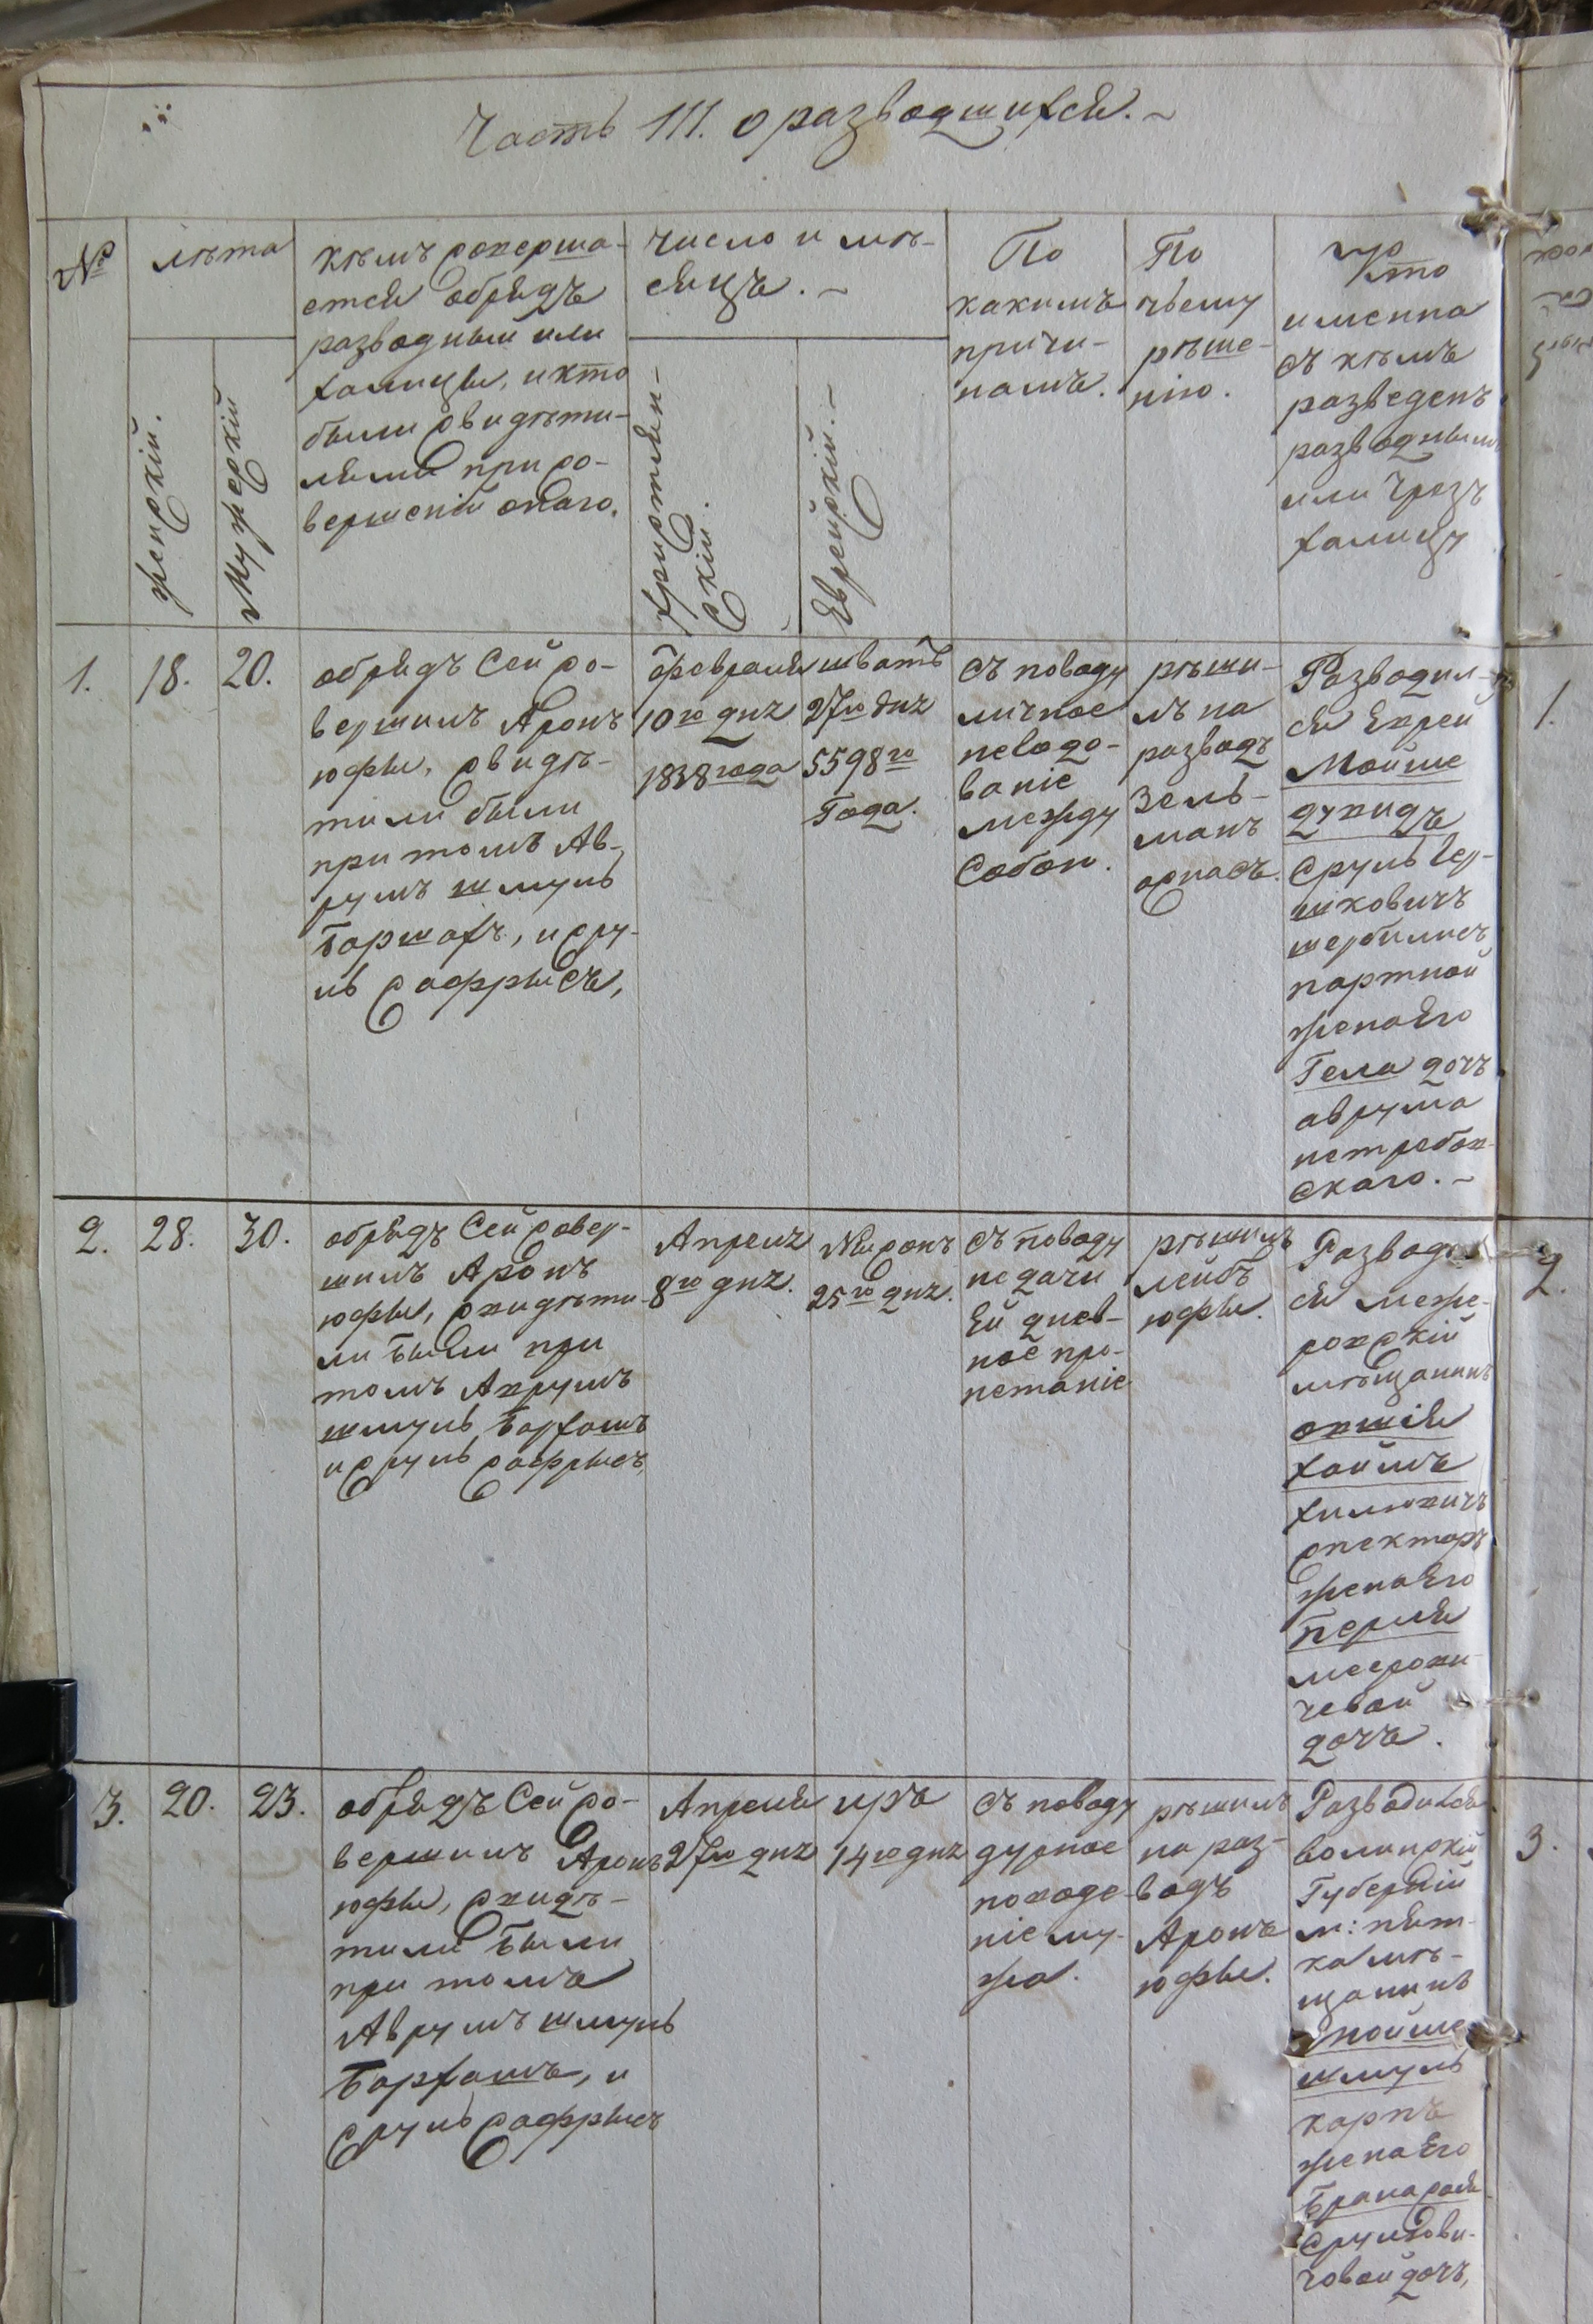 Часть III. о разводшихся.
№
лѣта
женскій.
Мужескій
кѣмъ соверша-
ется обрядъ
разводный или
халицы, и кто
были свидѣти-
лями при со-
вершеніи онаго.
число и мѣ-
сяцъ.
христіян-
скій.
Еврейскій.
По
какимъ
причи-
намъ.
По
чьему
рѣше-
нію.
Кто
именна
съ кѣмъ
разведенъ
разводнымъ
или Чрезъ
халицу
1.
18.
20.
обрядъ Сей со-
вершилъ Аронъ
юфы, свидѣ-
тили были
при томъ Ав-
румъ шмуль
Баршахъ, и сру-
ль сафрысъ,
февраля
10го дня
1838 года
шватъ
27го дня
5598го
Года.
съ поводу
личное
негодо-
ваніе
между
Собои.
рѣши-
лъ на
разводъ
Зель-
манъ
оснасъ.
Разводил-
ся Еврей
Мойше
духидъ
Сруль Гер-
шковичъ
портной
жена Его
Гела дочъ
аврума
скаго.
2.
28.
30.
обрядъ Сей совер-
шилъ Аронъ
юфы, свидѣти-
ли были при
томъ Аврумъ
шмуль Бархашъ
и сруль сафрысъ,
Апреля
8го дня.
Нисонъ
25го дня.
съ поводу
недачи
Ей днев-
ное про-
петаніе
рѣшилъ
лейбъ
юфы.
Разводил
ся меже-
ровскій
мѣщанинъ
овшія
хаимъ
хилювичъ
спекторъ
жена Его
Перля
меерови
чевой
дочъ.
3.
20.
23.
обрядъ Сей со-
вершилъ Аронъ
юфы, свидѣ-
тили были
при томъ
Аврумъ шмуль
Бархашъ, и
сруль сафрысъ
Апреля
27го дня
иръ
14го дня
съ поводу
дурное
поведе-
ніе му-
жа.
рѣшилъ
на раз-
водъ
Аронъ
юфы.
Разводился
волинскій
Губерніи
м: пят-
ка мѣ-
щанинъ
мойше
шмуль
карпъ
жена Его
Брана рая
Срулюви-
човой дочъ,
1.
2.
3.